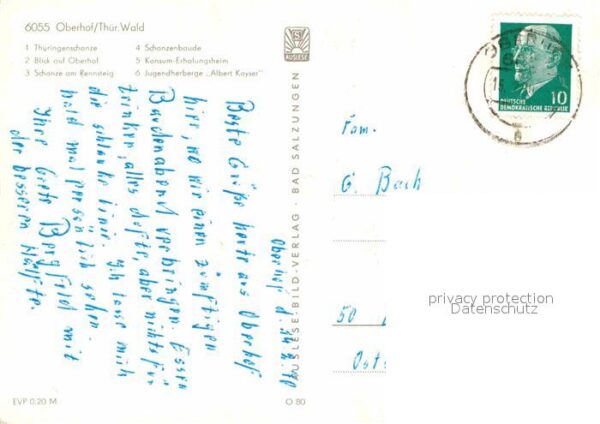 6055 Oberhof/Thür. Wald
1 Thüringenschanze
2 Blick auf Oberhof
3 Schanze am Rennsteig
4 Schanzenbaude
5 Konsum-Erholungsheim
6 Jugendherberge „Albert Kayser"
AUSLESE
AUSLESE-BILD-VERLAG · BAD SALZUNGEN
Oberhof, d.
Beste Grüße heute aus Oberhof
hier, wo wir einen zünftigen
Baudenabend verbringen. Essen
trinken, alles deftig, aber nichts für
die schlanke Linie. Ich lasse mich
bald mal persönlich sehen.
Ihre Grete Bergfeld mit
der besseren Hälfte.
DEUTSCHE
DEMOKRATISCHE REPUBLIK
10
Fam.
G. Bach
50
privacy protection
Datenschutz
EVP 0,20 M
O 80